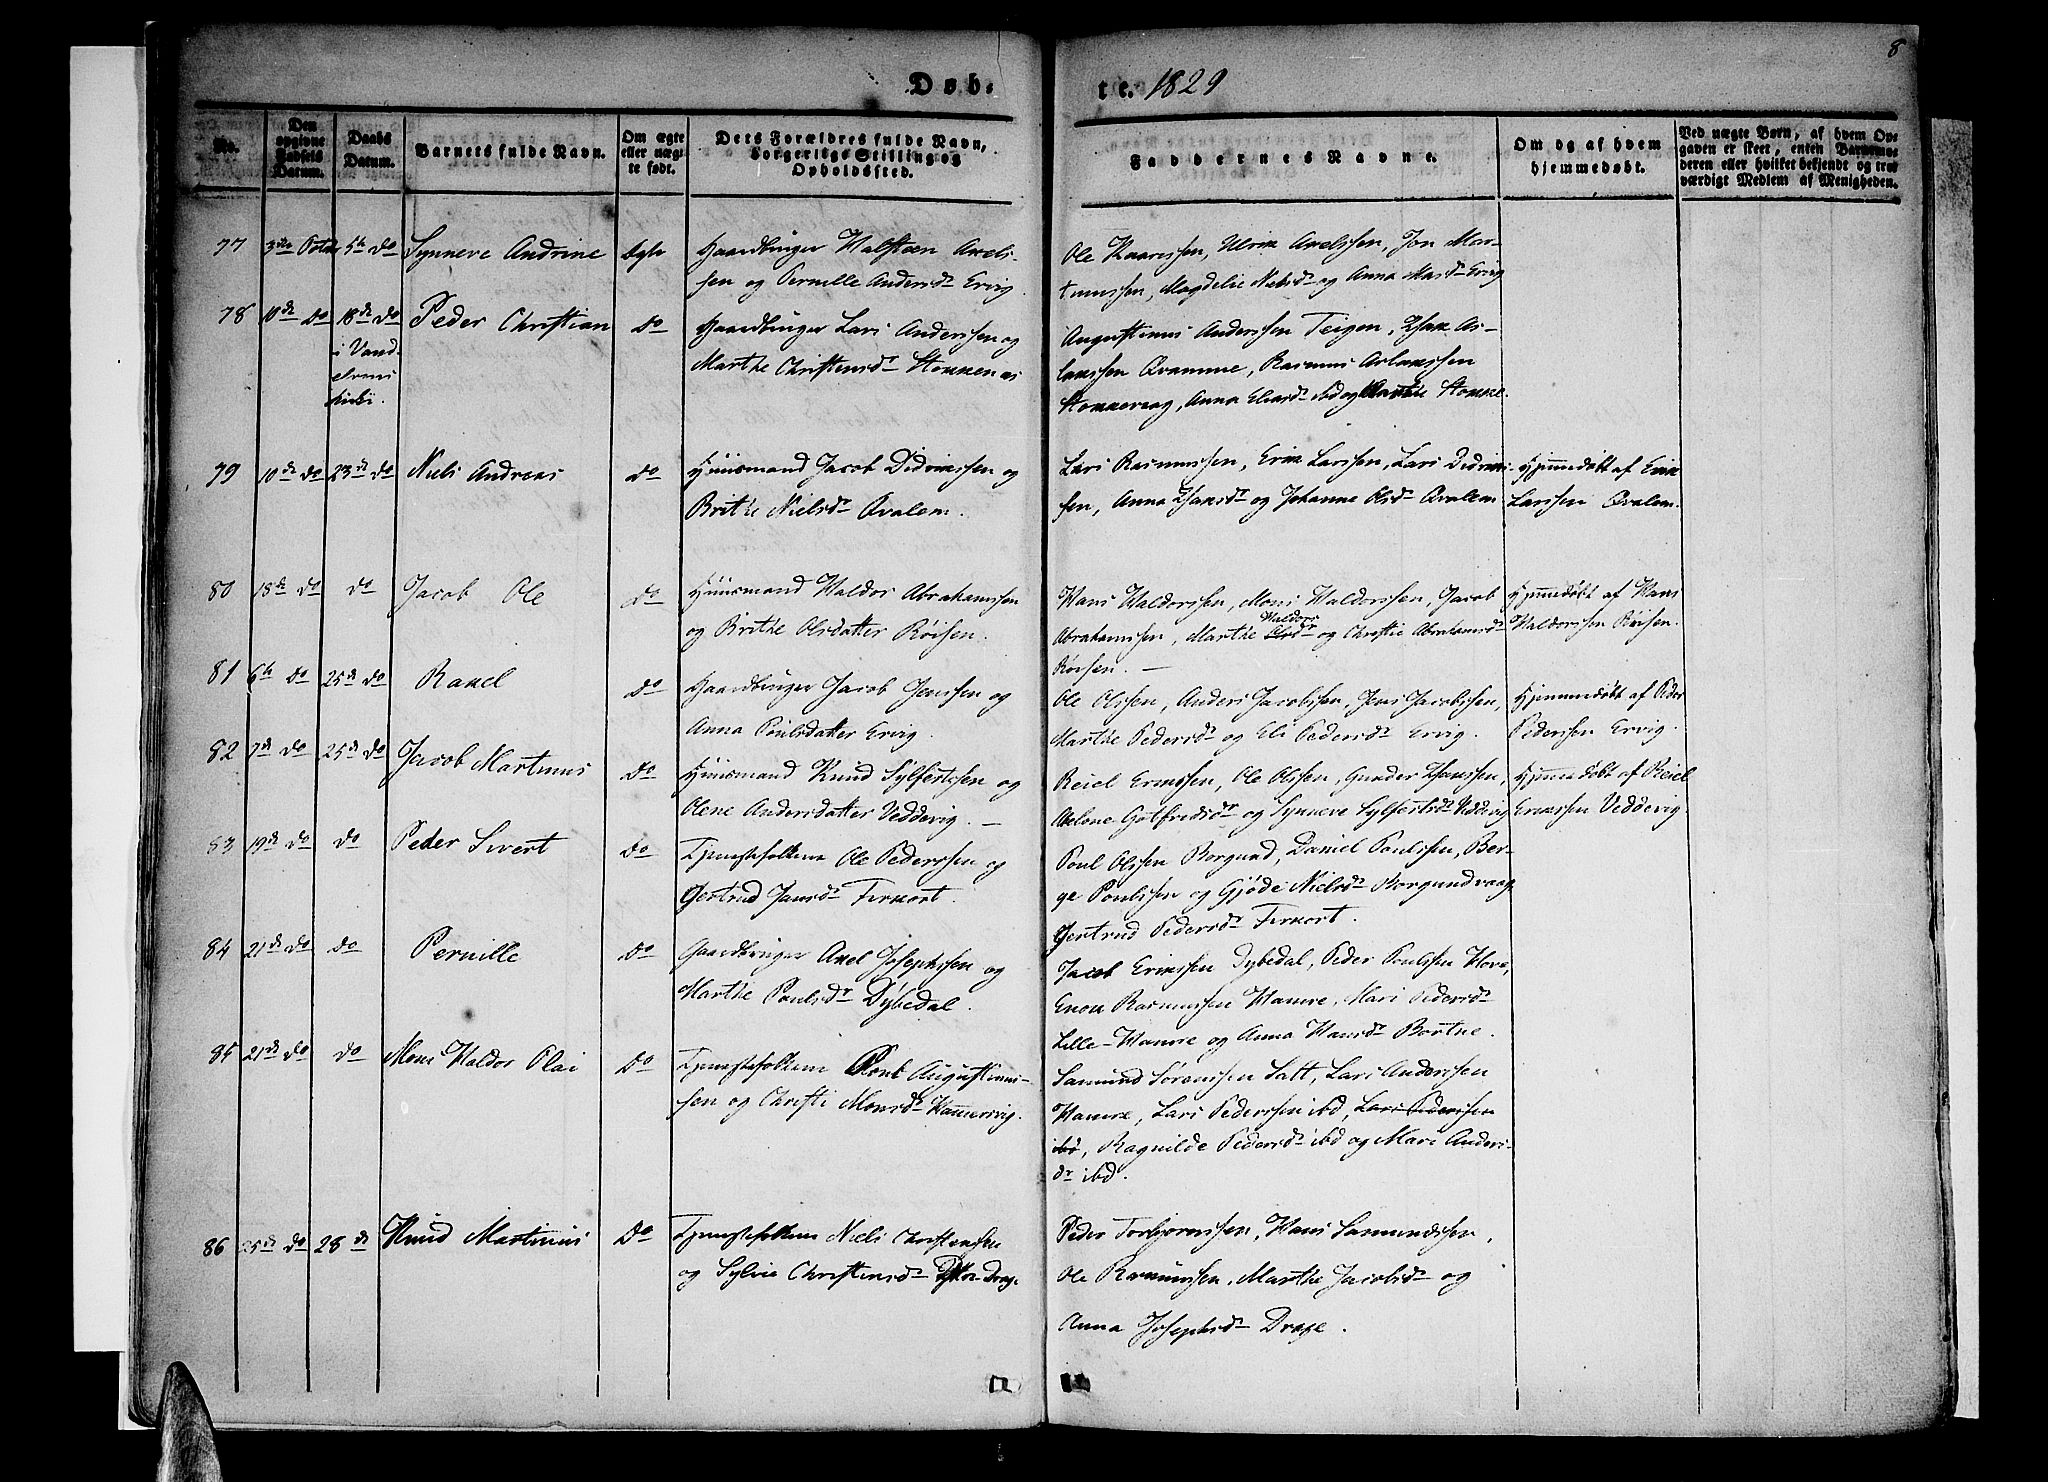 8
Døb-
te. 1829
No.
Den opgivne Fødsels Datum.
Daabs Datum.
Barnets fulde Navn.
Om ægte eller uægte født.
Dets Forældres fulde Navn, borgerlige Stilling og Opholdssted.
Faddernes Navne.
Om og af hvem hjemmedøbt.
Ved uægte Børn, af hvem Opgaven er skeet, enten Barnemoderen eller hvilket bekjendt og troværdigt Medlem af Menigheden.
77 3die 5te do Synneve Andrine Ægte Gaardbruger Halsteen Axels-
sen og Pernille Andersdr Ervig
Ole Kaaressen, Ulrik Axelssen, Jon Mar-
tinussen, Magdelie Nielsdr og Anna Masdr Ervig
78 10de do 18de do Peder Christian do Gaardbruger Lars Anderssen og
i Vand-
elvens
Kirke.
Marthe Christensdr Stokkenæs
Augustinus Anderssen Teigen, Isak As-
laksen Qvamme, Rasmus Aslakssen
Stokkevaag, Anna Eliasdr ibd og Marthe Stokke.
79 10de do 23de do Niels Andreas do Huusmand Jacob Didrikssen og
Brithe Nielsdr Qvalem.
Lars Rasmussen, Erik Larssen, Lars Didriks-
sen, Anna Isaksdr og Johanna Olsdr Qvalem
Hjemmedøbt af Erik
Larssen Qvalem.
80 18de do do Jacob Ole do Huusmand Haldor Abrahamssen
og Brithe Olsdatter Röisen.
Hans Haldorssen, Mons Haldorssen, Jacob
Abrahamssen, Marthe Haldorsdr og Christie Abrahamsdr
Röisen. —
Hjemmedøbt af Hans
Haldorssen Röisen.
81 6te do 25de do Rakel do Gaardbruger Jacob Jenssen og
Anna Poulsdatter Ervig.
Ole Olssen, Anders Jacobssen, Jens Jacobssen,
Marthe Pedersdr og Eli Pedersdr Ervig.
Hjemmedøbt af Peder
Pederssen Ervig.
82 7de do 25de do Jacob Martinus do Huusmand Knud Sylfestssen og
Olene Andersdatter Veddevig. —
Reiel Erikssen, Ole Olssen, Gunder Isakssen,
Axelene Gotfredsdr og Synneve Sylfestsdr Veddevig
Hjemmedøbt af Reiel
Erikssen Veddevig.
83 19de do do Peder Sivert do Tjenestefolkene Ole Pederssen og
Gertrud Jansdr Tirkort.
Poul Olssen Borgund, Daniel Poulssen, Ber-
ge Poulssen og Gjøde Nielsdr Borgundvaag
Gertrud Pedersdr Tirkort.
84 21de do do Pernille do Gaardbruger Axel Josephssen og
Marthe Poulsdr Dybedal.
Jacob Erikssen Dybedal, Peder Poulssen Hove,
Enok Rasmussen Hamre, Mari Pedersdr
Lille-Hamre og Anna Hansdr Bortne.
85 21de do do Mons Haldor Olai do Tjenestefolkene Poul Augustinus-
sen og Christi Monsdr Hammersvig.
Samund Sörenssen Satt, Lars Anderssen
Hamre, Lars Pederssen ibd, Lars Pederssen
ibd, Ragnilde Pedersdr ibd og Mari Anders-
dr ibd.
86 25de do 28de Knud Martinus do Tjenestefolkene Niels Christenssen
og Sylvie Christensdr Drage
Peder Torbjørnssen, Hans Samundssen,
Ole Rasmussen, Marthe Jacobsdr og
Anna Josephsdr Drage.